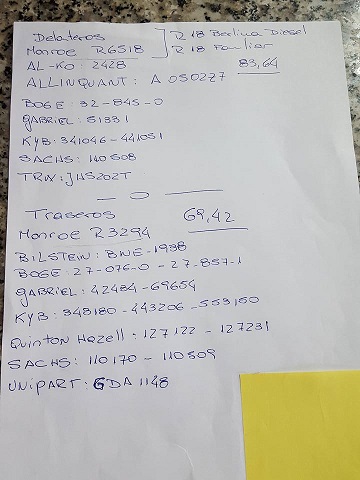 Delateros
Monroe R6518
R18 Berlina Diesel
R18 Familier
AL-KO: 2428
83,64
ALLINQUANT: A 050227
BOGE: 32-845-0
GABRIEL: 51331
KYB: 341046-441051
SACHS: 110508
TRW: JHS202T
Traseros
69,42
Monroe R3294
BILSTEIN: BNE-1938
BOGE: 27-076-0 - 27-857-1
GABRIEL: 42484-69654
KYB: 343180-443206-553150
Quinton Hazell: 127122 - 127231
SACHS: 110170 - 110509
UNIPART: GDA1148